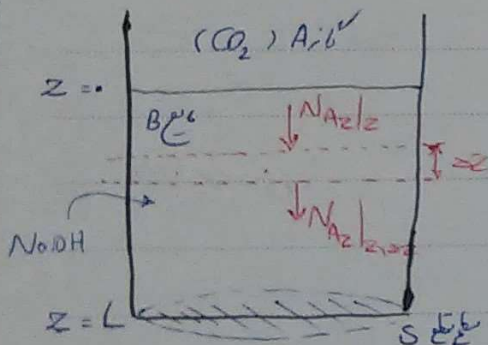 (CO₂) A گاز
Z = 0
مایع B
N_Az|z
Δz
NaOH
N_Az|z+Δz
Z = L
سطح مقطع S